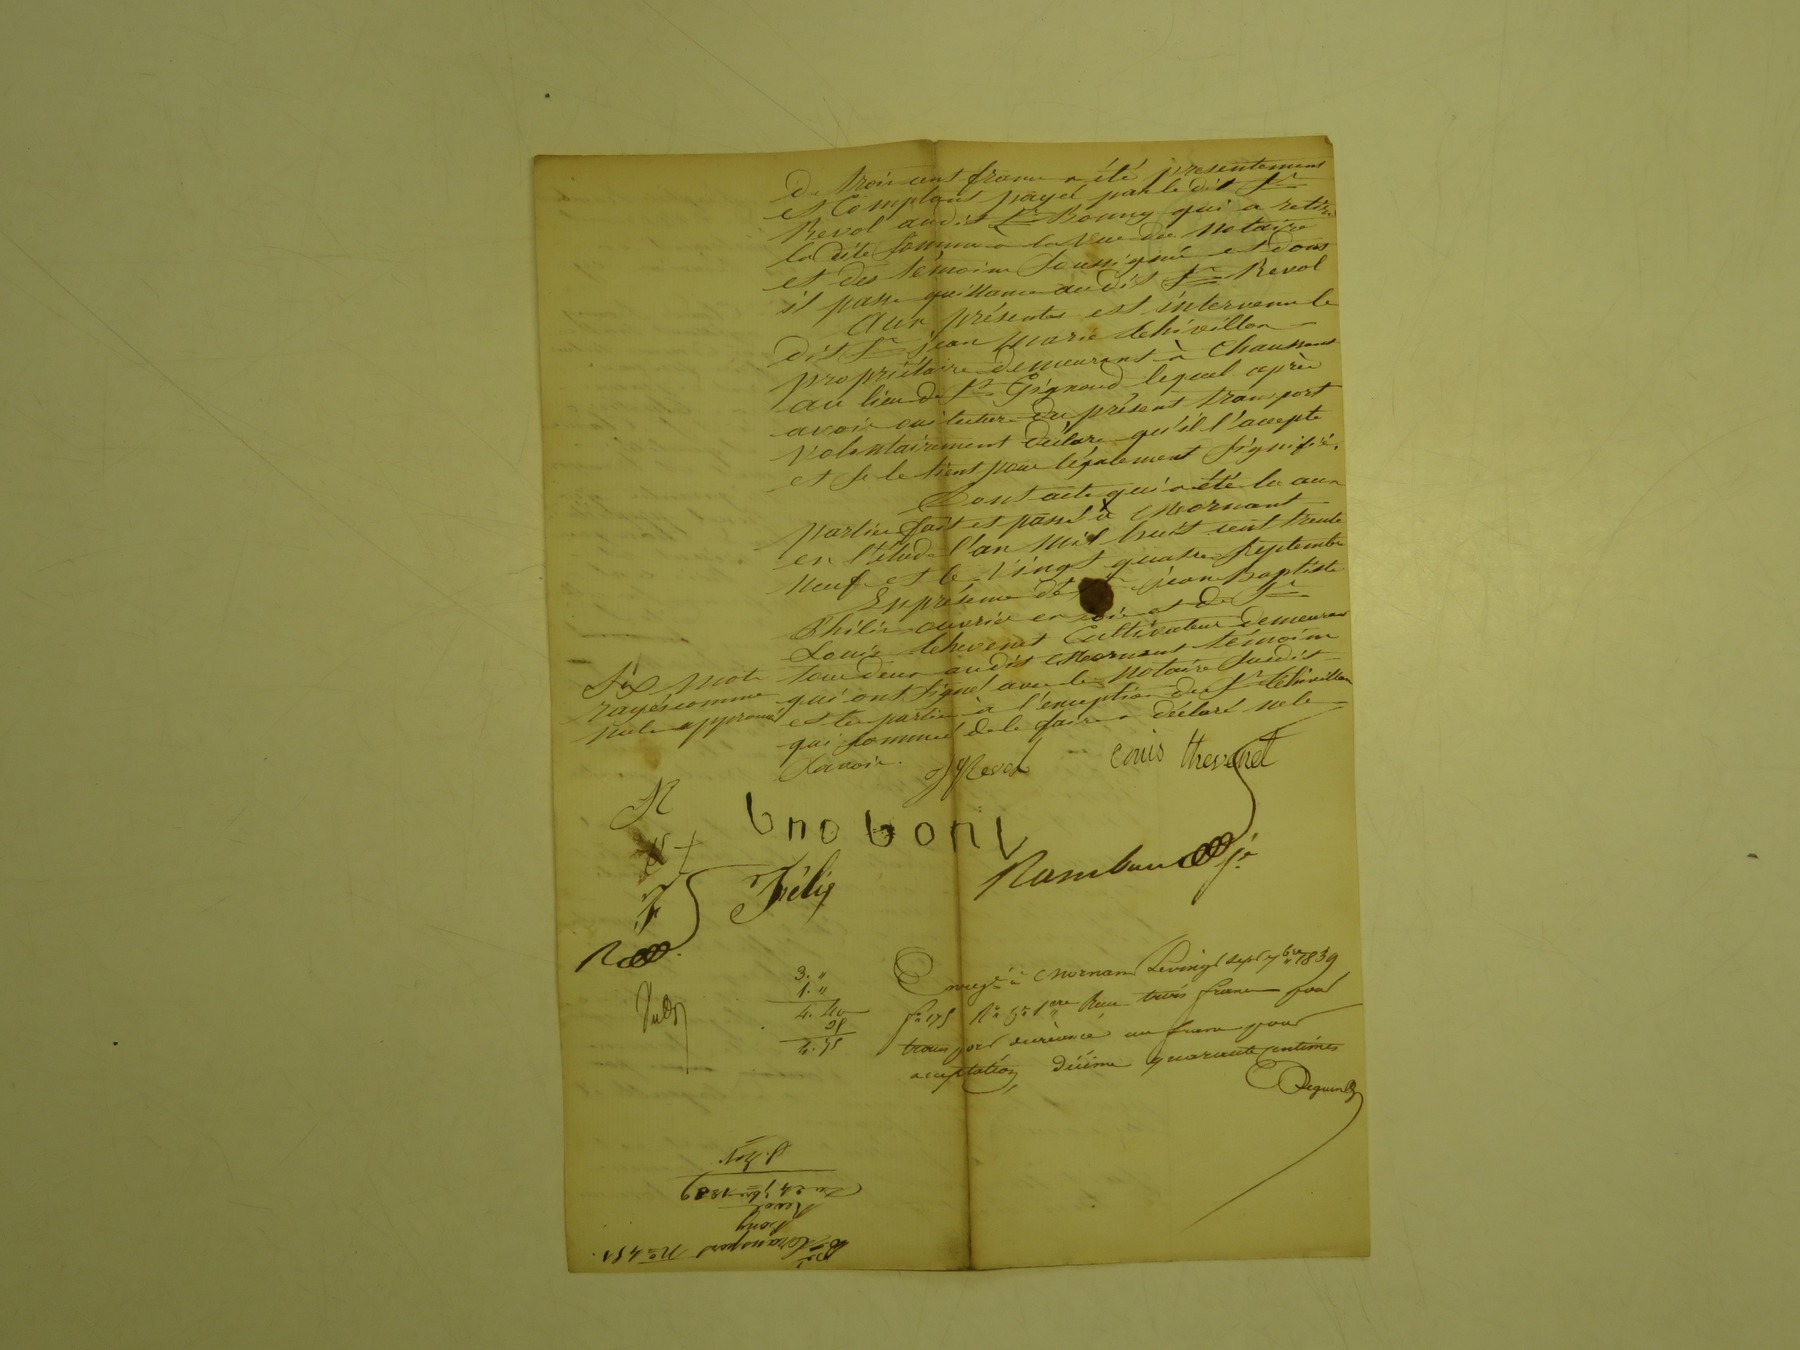 De trois cent francs a été présentement
et Comptant payé par le dit Sr
Revol audit Sr Bonny qui a retiré
la dite somme à la vue du Notaire
et des témoins soussignés et dont
il passe quittance audit Sr Revol
Aux présentes est intervenu le
dit Sr jean Marie
propriétaire demeurant à Chaussant
au lieu de Gignoud lequel après
avoir oui lecture du présent transport
Volontairement déclare qu'il l'accepte
et se le tient pour légalement signifié.
Dont acte qui a été lu aux
parties fait et passé à Mornant
en l'étude l'an Mil huit cent trente
Neuf et le Vingt quatre Septembre
En présence de Sr jean Baptiste
Philis ouvrier en soie et de Sr
Louis thevenet Cultivateur demeurant
tous deux audit Mornant témoins
qui ont signé avec le Notaire susdit
et les parties à l'exception du Sr
qui sommé de le faire a déclaré ne le
savoir.
Six mots
rayés comme
nuls approuvés
Revol
Louis thevenet
R
F
Félix
3. "
1. "
4. 40
4.
Enregé à Mornant Le vingt sept 7bre 1839
fo 175 Ro Reçu trois francs pour
transport de créance un franc pour
acceptation décime quarante centimes
transport No 451.
Bony
Revol
Du 24 7bre 1839